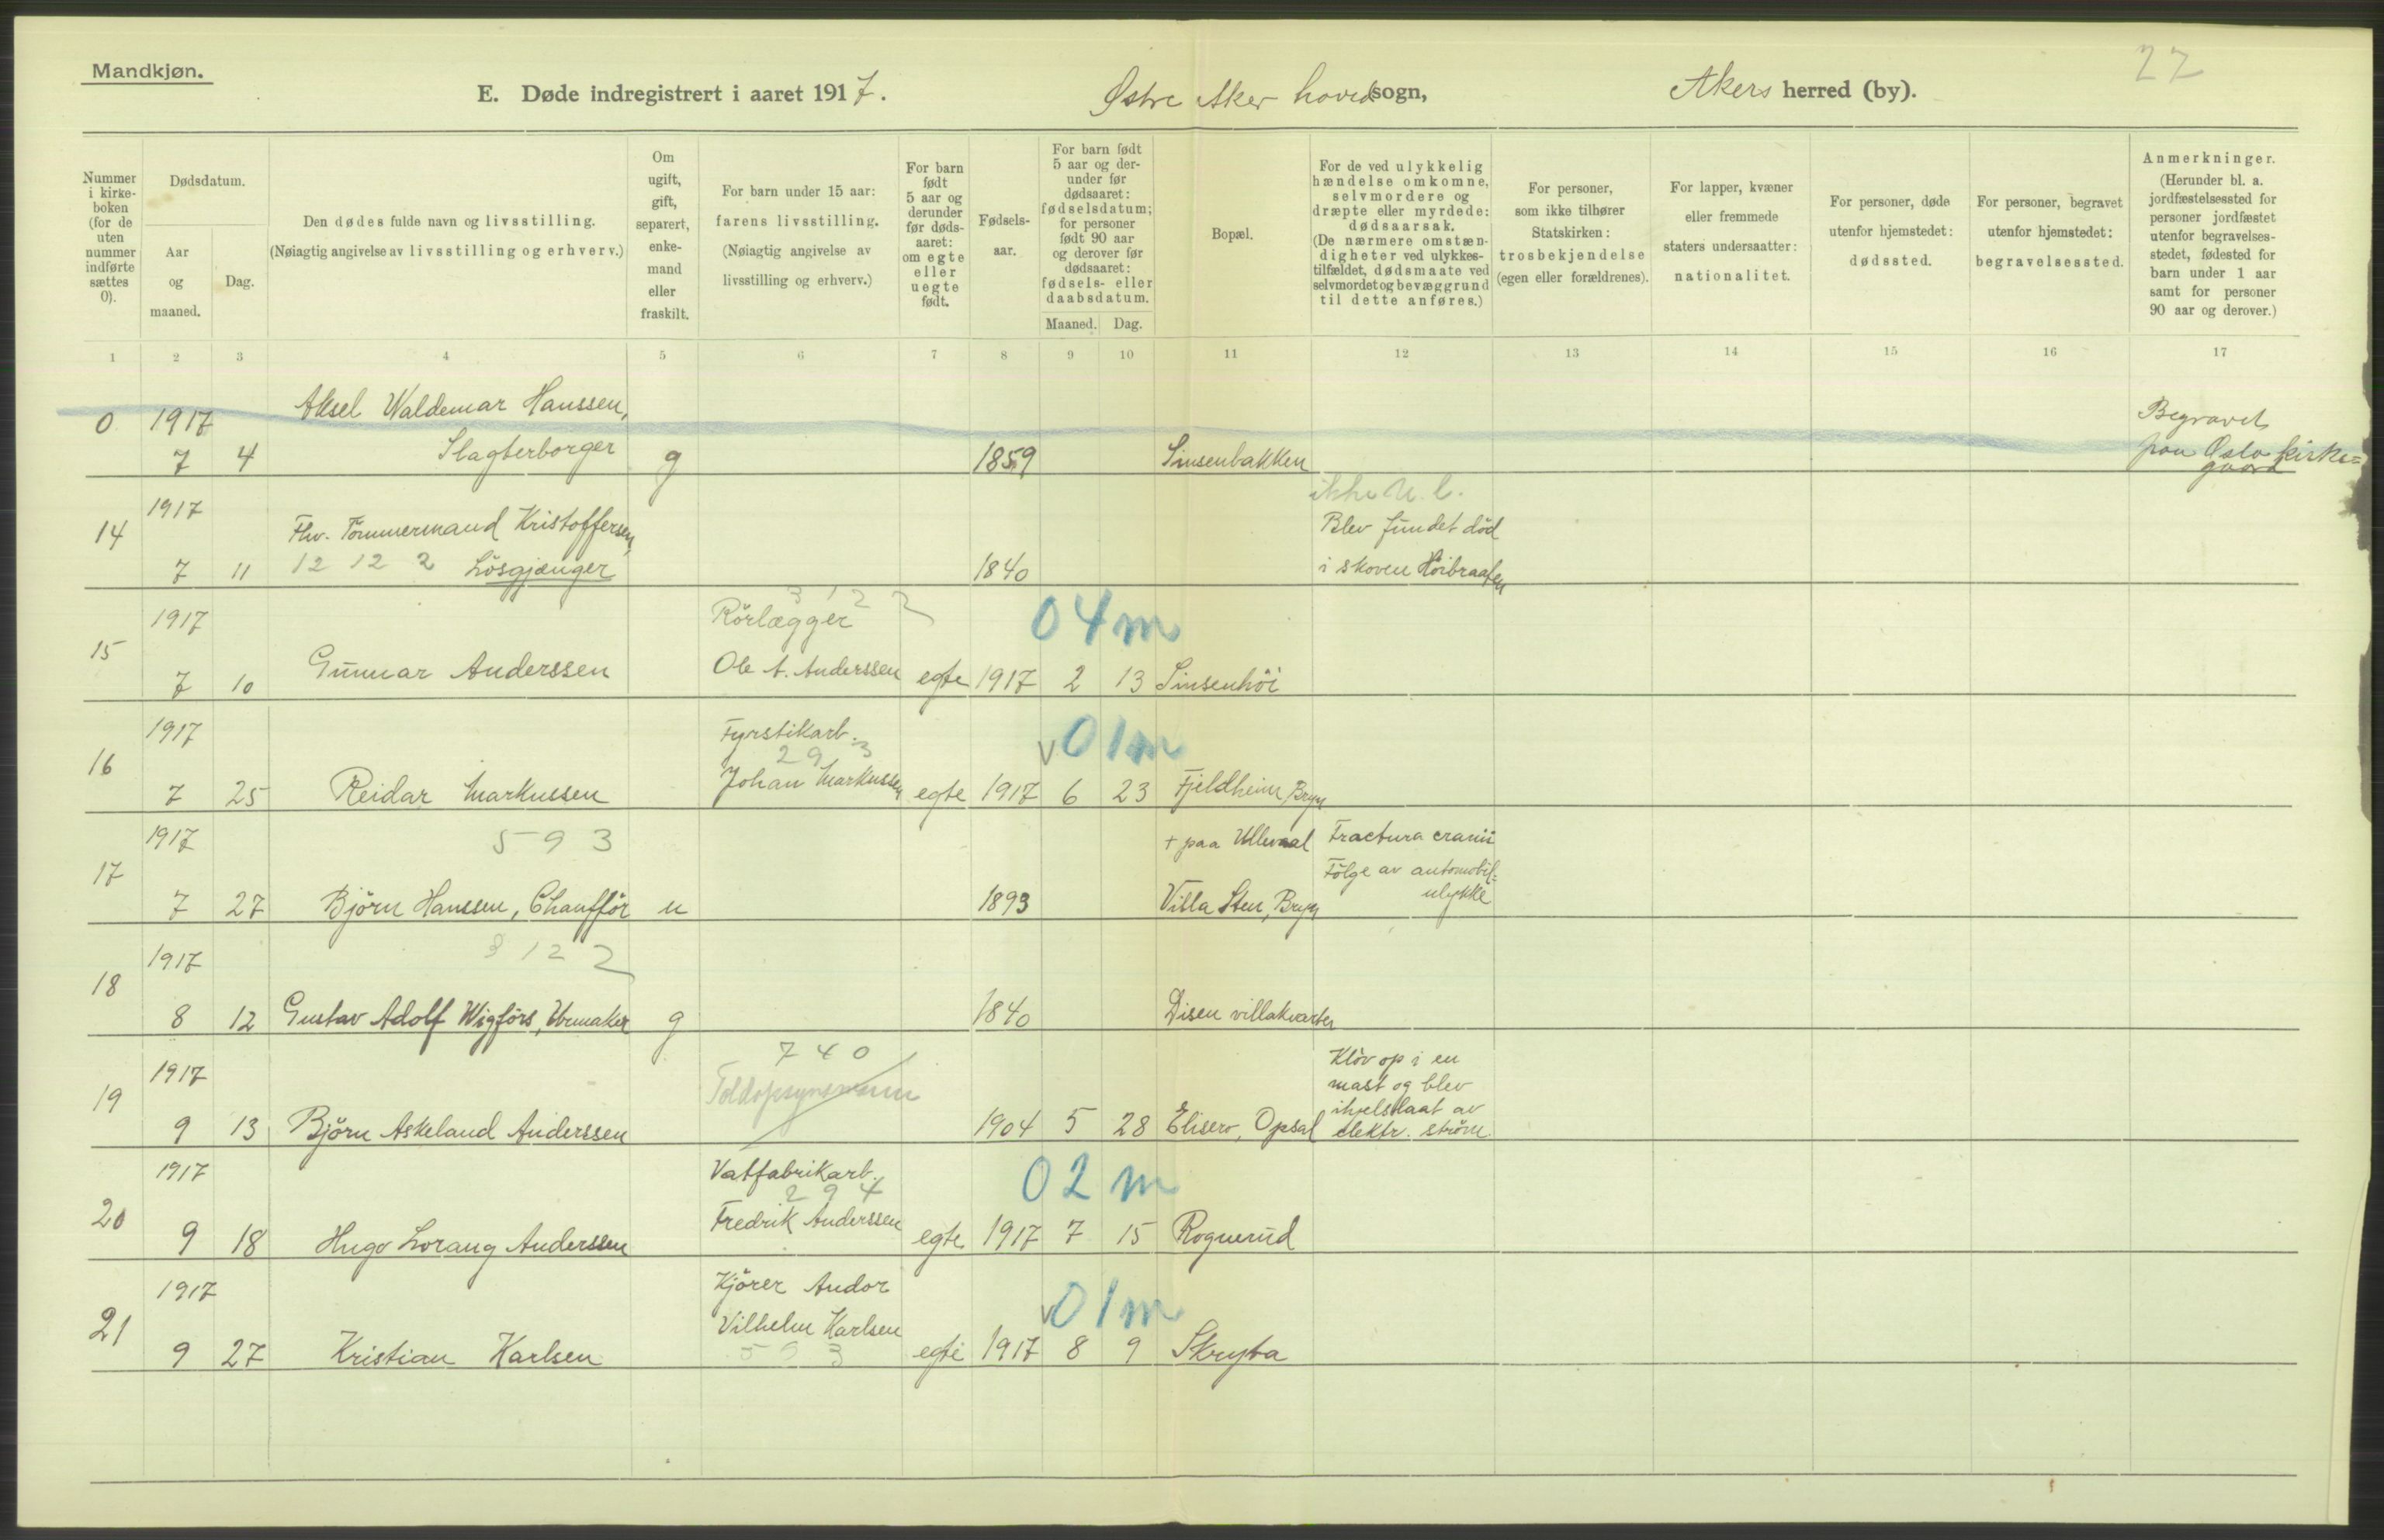 Mandkjøn.
27
E. Døde indregistrert i aaret 1917. Østre Aker hovedsogn, Akers herred (by).
Nummer i kirke-boken (for de uten nummer indførte sættes 0).
Dødsdatum.
Aar og maaned.
Dag.
Den dødes fulde navn og livsstilling.
(Nøiagtig angivelse av livsstilling og erhverv.)
Om ugift, gift, separert, enke-mand eller fraskilt.
For barn under 15 aar:
farens livsstilling.
(Nøiagtig angivelse av livsstilling og erhverv.)
For barn født 5 aar og derunder før døds-aaret: om egte eller uegte født.
Fødsels-aar.
For barn født 5 aar og der-under før dødsaaret: fødselsdatum; for personer født 90 aar og derover før dødsaaret: fødsels- eller daabsdatum.
Maaned. Dag.
Bopæl.
For de ved ulykkelig hændelse omkomne, selvmordere og dræpte eller myrdede: dødsaarsak.
(De nærmere omstæn-digheter ved ulykkes-tilfældet, dødsmaate ved selvmordet og bevæggrund til dette anføres.)
For personer, som ikke tilhører Statskirken: trosbekjendelse (egen eller forældrenes).
For lapper, kvæner eller fremmede staters undersaatter: nationalitet.
For personer, døde utenfor hjemstedet: dødssted.
For personer, begravet utenfor hjemstedet: begravelsessted.
Anmerkninger.
(Herunder bl. a. jordfæstelsessted for personer jordfæstet utenfor begravelses-stedet, fødested for barn under 1 aar samt for personer 90 aar og derover.)
1 2 3 4 5 6 7 8 9 10 11 12 13 14 15 16 17
0 1917 Aksel Waldemar Hanssen, Begravet
7 4 Slagterborger g 1859 Sinsenbakken paa Oslo kirke=
gaard
ikke u. l.
14 1917 Fhv. Tömmermand Kristoffersen, Blev fundet död
7 11 12 12 2 Lösgjænger 1840 i skoven Höibraaten
3 1 2 2
15 1917 Rörlægger 04m
7 10 Gunnar Anderssen Ole A. Anderssen egte 1917 2 13 Sinsenhöi
16 1917 Fyrstikarb. v 01m
2 9 3
7 25 Reidar Markussen Johan Markussen egte 1917 6 23 Fjeldheim, Bryn
17 1917 5 9 3 + paa Ullevaal Fractura cranii
Fölge av automobil=
ulykke
7 27 Björn Hanssen, Chaufför u 1893 Villa Sten, Bryn
18 1917 8 12 2
8 12 Gustav Adolf Wigförs, Urmaker g 1840 Disen villakvarter
7 4 0 Klöv op i en
19 1917 Toldopsynsmann mast og blev
ihjelslaat av
9 13 Björn Askeland Anderssen 1904 5 28 Elisero, Opsal elektr. ström.
20 1917 Vatfabrikarb. 02 m
2 9 4
9 18 Hugo Lorang Anderssen Fredrik Anderssen egte 1917 7 15 Rognerud
21 1917 Kjörer Andor v 01m
Vilhelm Karlsen
9 27 Kristian Karlsen 5 9 3 egte 1917 8 9 Skryta